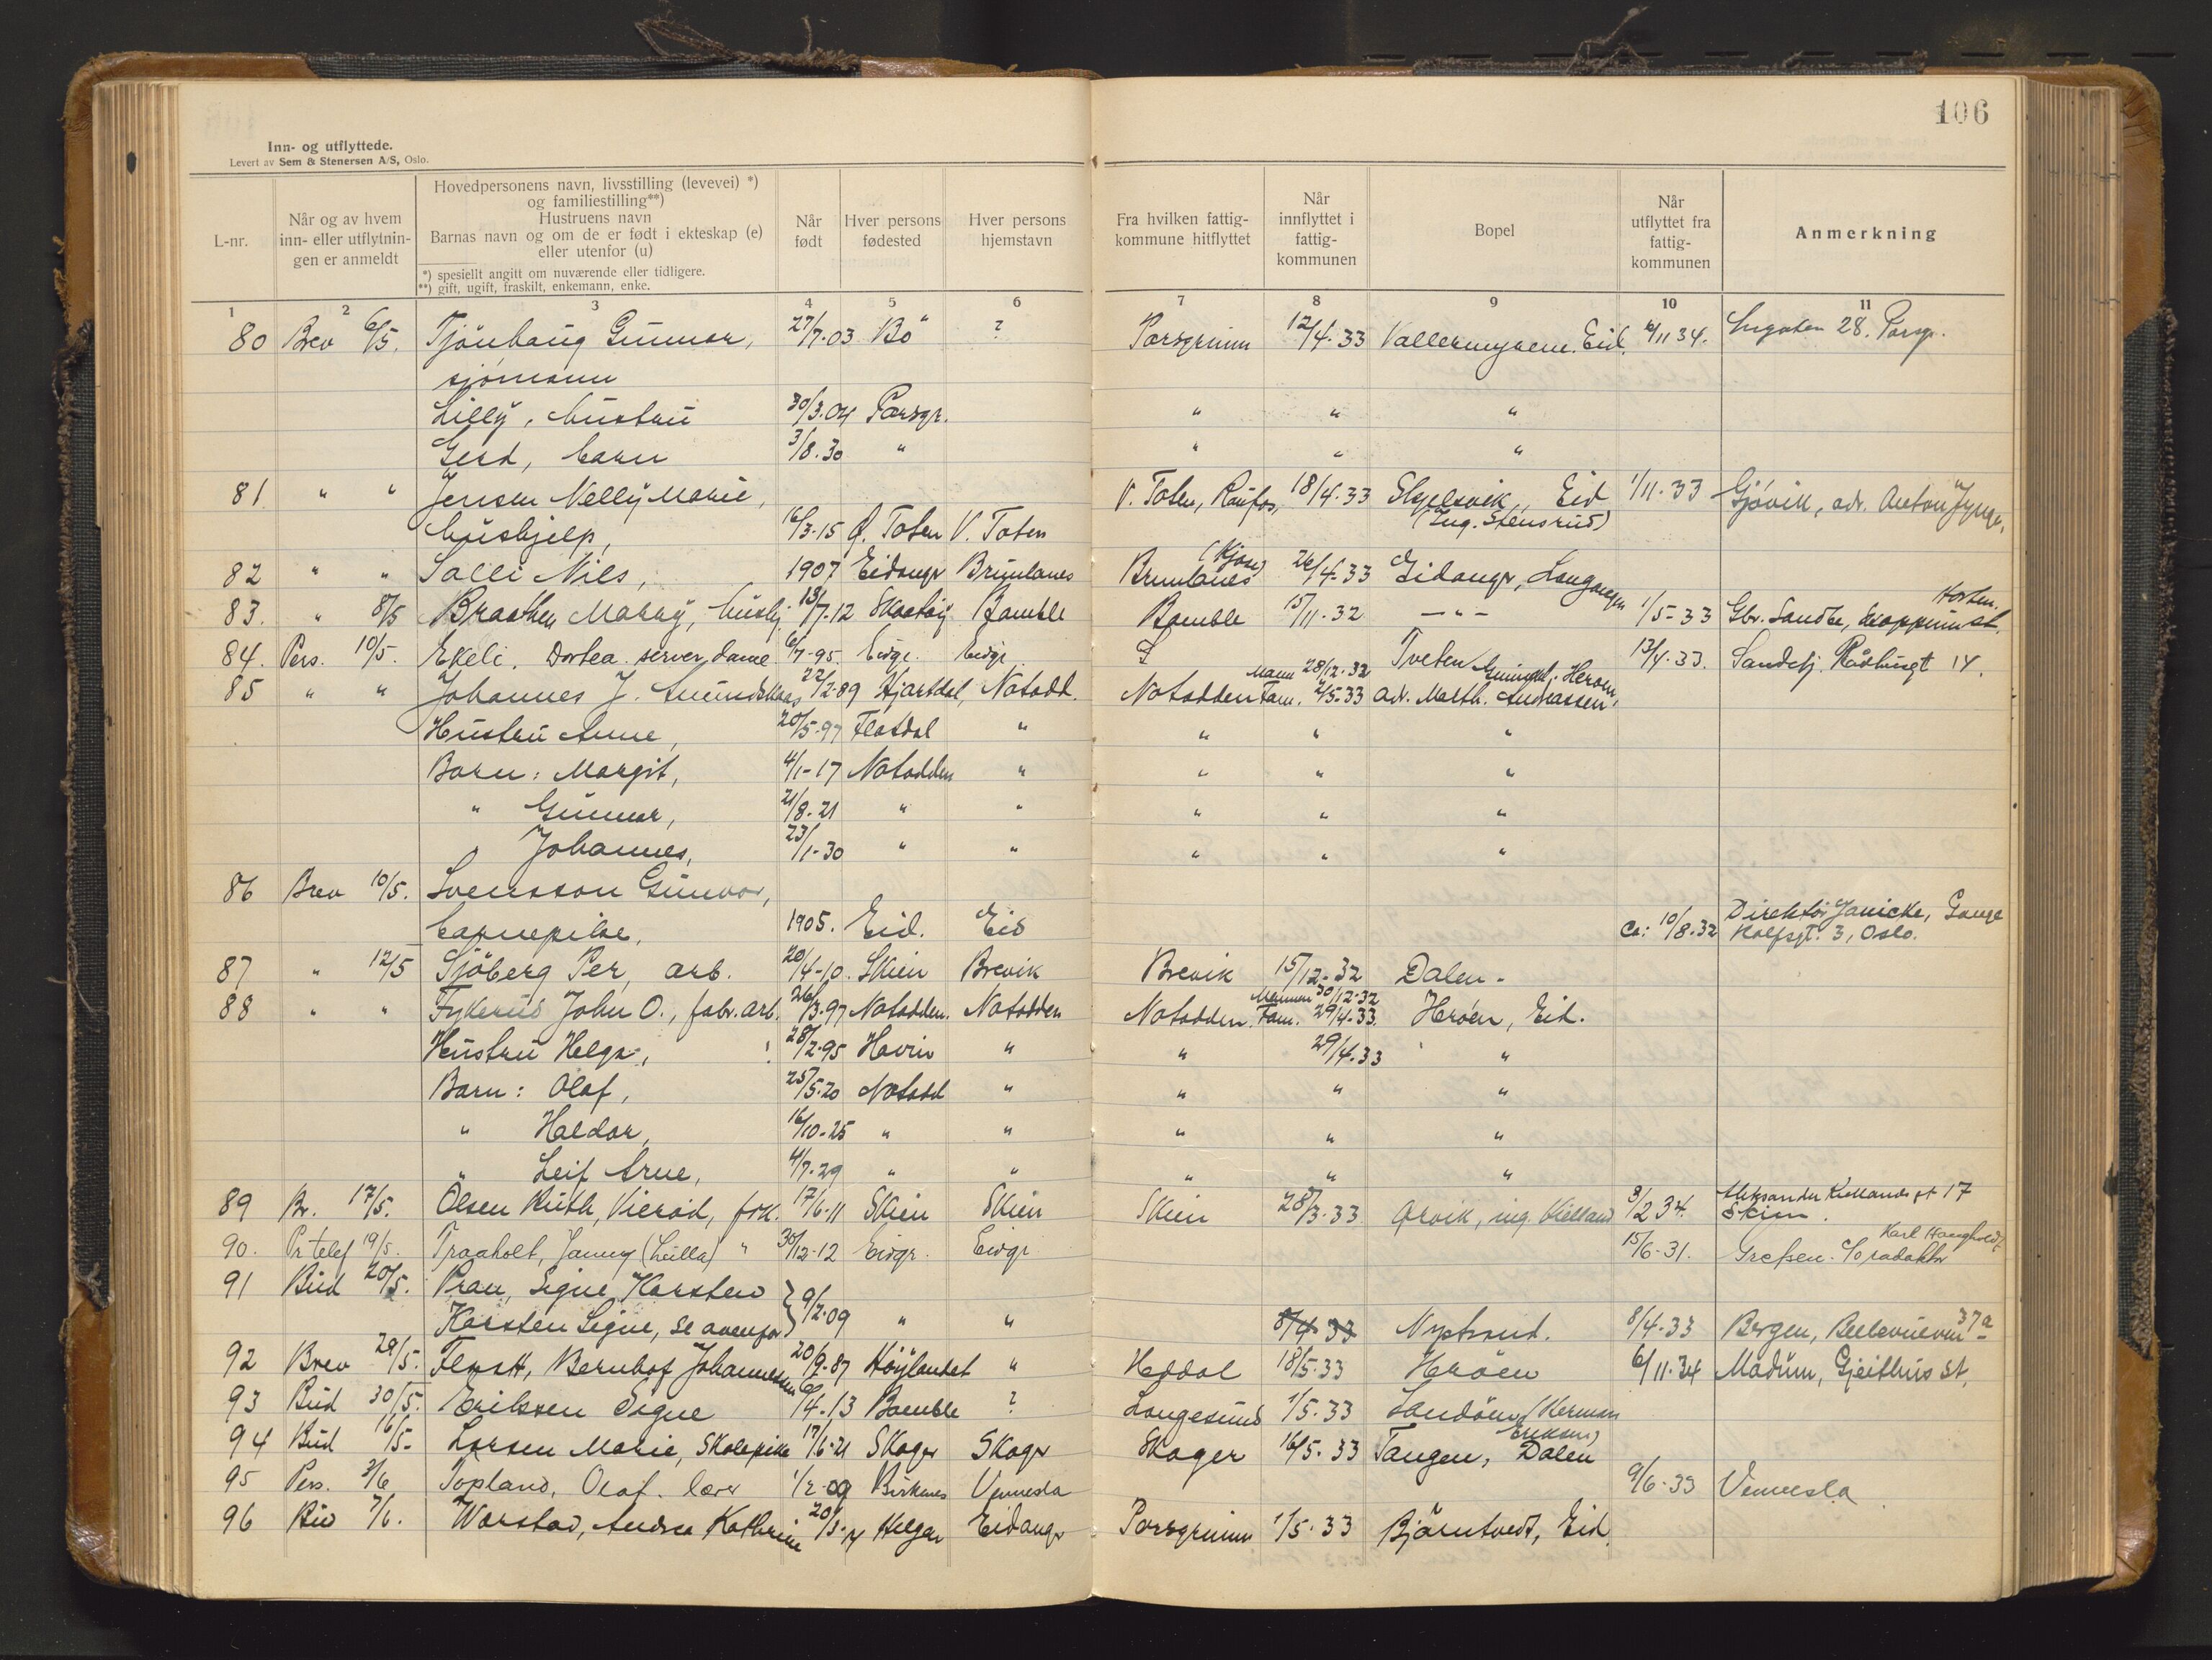 106
Inn- og utflyttede.
Levert av Sem & Stenersen A/S, Oslo.
L-nr. Når og av hvem inn- eller utflytnin-gen er anmeldt Hovedpersonens navn, livsstilling (levevei) *) og familiestilling**) Hustruens navn Barnas navn og om de er født i ekteskap (e) eller utenfor (u) *) spesiellt angitt om nuværende eller tidligere. **) gift, ugift, fraskilt, enkemann, enke. Når født Hver persons fødested Hver persons hjemstavn Fra hvilken fattig-kommune hitflyttet Når innflyttet i fattig-kommunen Bopel Når utflyttet fra fattig-kommunen Anmerkning
1 2 3 4 5 6 7 8 9 10 11
80 Brev 6/5. Tjönbaug Gunnar, 27/7-03 Bö ? Porsgrunn 12/4-33 Vallermyrene. Eid. 6/11 34. 28. Porsgr.
sjömann
Lilly, hustru 30/3.04 Porsgr. " " "
Gerd, barn 3/8.30 " " " "
81 " " Jensen Nelly Marie, V. Toten, Raufos, 18/4-33 Skjelsvik, Eid 1/11-33 Gjövik, adr. Anton
hushjelp, 16/3-15 Ö. Toten V. Toten (Ing. Stensrud)
82 " " Salli Nils, 1907 Eidangr Brunlanes Brunlanes (Kjose) 26/4-33 Eidangr, Langangen
83. " 8/5 Braathen Marry, hushj. 13/7-12 Skaatöy Bamble Bamble 15/11-32 -"- 1/5-33 Gbr. Sandbe, Skoppum st. Horten.
84. Pers. 10/5. Ekeli, Dortea. server.dame 6/7-95. Eidgr. Eidgr Tveten 13/4-33. Sandefj. Rådhusgt 14.
85 " " Johannes J. Amundskaas 22/2-89 Hjartdal, Notodd. Notodden Mann 28/12-32 Fam. 2/5-33 Heröen, adr. Marth. Andreassen.
Hustru Anne, 20/5-97 Flatdal " " " "
Barn: Margit, 4/1-17 Notodden " " " "
" Gunnar, 21/8-21 " " " " "
" Johannes, 23/1-30 " " " " "
86 Brev 10/5. Svensson Gunvor,
barnepike, 1905. Eid. Eid Ca: 10/8-32 Direktör Janicke, Gange Rolfsgt. 3, Oslo.
87 " 12/5 Sjöberg Per, arb. 20/4-10. Skien Brevik Brevik 15/12-32 Dalen -
88 " " Fykerud John O., fabr.arb. 26/3-97 Notodden. Notodden Notodden. Mannen 30/12-32 Fam. 29/4-33. Heröen, Eid.
Hustru Helga, 28/2-95 Hovin " " 29/4-33 "
Barn: Olaf, 25/5-20 Notodd " " " "
" Haldor, 16/10-25 " " " " "
" Leif Arne, 4/7-29 " " " " "
89 Br. 17/5. Olsen Ruth, Vieröd, frk. 17/6-11 Skien Skien Skien 28/3-33 Örvik, ing. Kielland 3/2 34. Aleksander Kiellands gt 17 Skien.
90. Pr telef 19/5. Traaholt, Jenny (Leilla) " 30/12-12 Eidgr. Eidgr 15/6-31. Grefsen. c/o radaktör Karl Haugholdt
91 Bud 20/5. Pran, Signe Karsten
Karsten Signe, se ovenfor } 9/2-09 " " 8/4 33 Nystrand. 8/4-33 Bergen, Bellevueven 37a
92 Brev 28/5. Flaatt, Bernhof Johannesen 20/9-87 Höylandet " Heddal 18/5-33 Heröen 6/11-34 Modum, Gjeithus st.
93 Bud 30/5. Eriksen Signe 6/4-13 Bamble ? Langesund 1/5-33 Sandöen (Herman Eriksen)
94 Bud 16/5- Larsen Marie, Skolepike 17/6-21 Skoger Skogr Skoger 16/5-33 Tangen, Dalen
95 Pers. 3/6 Topland, Olaf. lærer 1/2-09 Birkenes Vennesla 9/6-33 Vennesla
96 Bud 7/6. Warstad, Andrea Kathrine Helgen Eidangr Porsgrunn 1/5-33 Björntvedt, Eid.